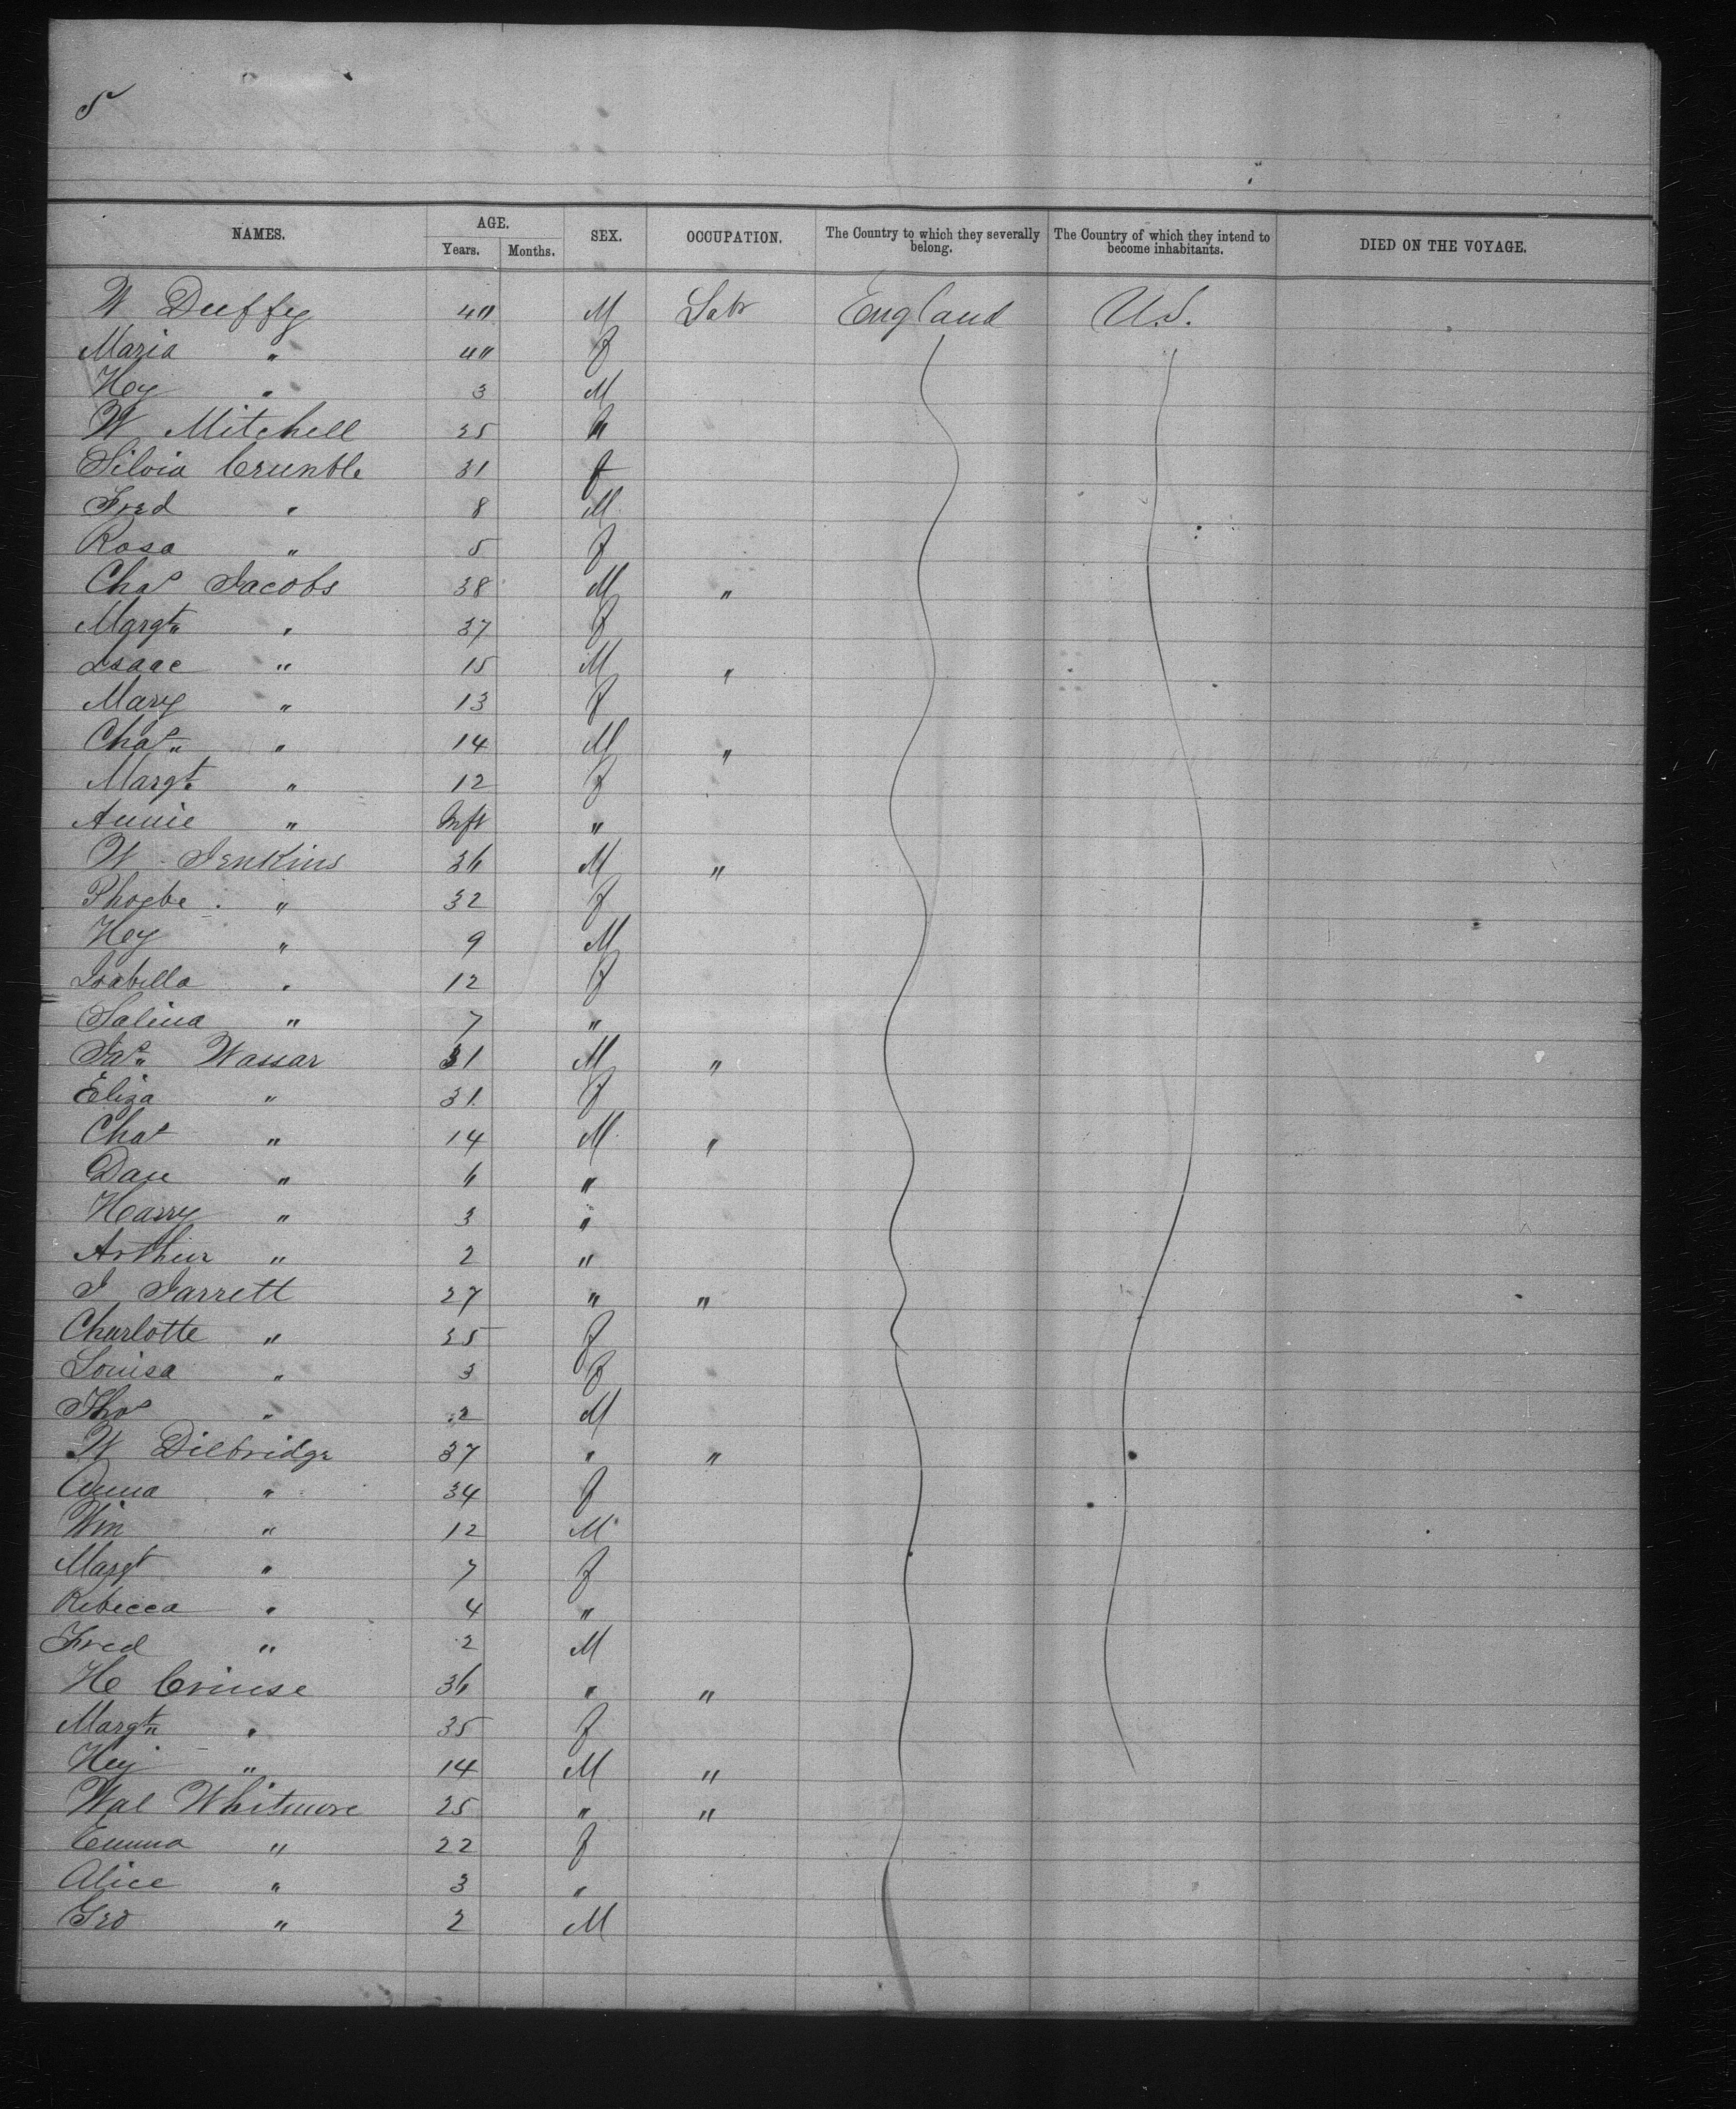 5
NAMES. AGE. SEX. OCCUPATION. The Country to which they severally belong. The Country of which they intend to become inhabitants. DIED ON THE VOYAGE.
Years. Months.
W Duffey 40 M Labr England U.S.
Maria " 40 f
Hey " 3 M
W Mitchell 25 M
Silvia Crumble 31 f
Fred " 8 M
Rosa " 5 f
Chas Jacobs 38 M "
Margt " 37 f
Isaac " 15 M "
Mary " 13 f
Chas " 14 M "
Margt " 12 f
Annie " Inft "
W Jenkins 36 M "
Phoebe " 32 f
Hey " 9 M
Isabella " 12 f
Salina " 7 "
Jas Wassar 31 M "
Eliza " 31 f
Chas " 14 M "
Dan " 6 "
Harry " 3 "
Arthur " 2 "
J Jarrett 27 " "
Charlotte " 25 f
Louisa " 3 f
Thos " 2 M
W Dilbridge 37 " "
Anna " 34 f
Wm " 12 M
Margt " 7 f
Rebecca " 4 "
Fred " 2 M
H Crinse 36 " "
Margt " 35 f
Hey " 14 M "
Wal Whitmore 25 " "
Emma " 22 f
Alice " 3 "
Geo " 2 M